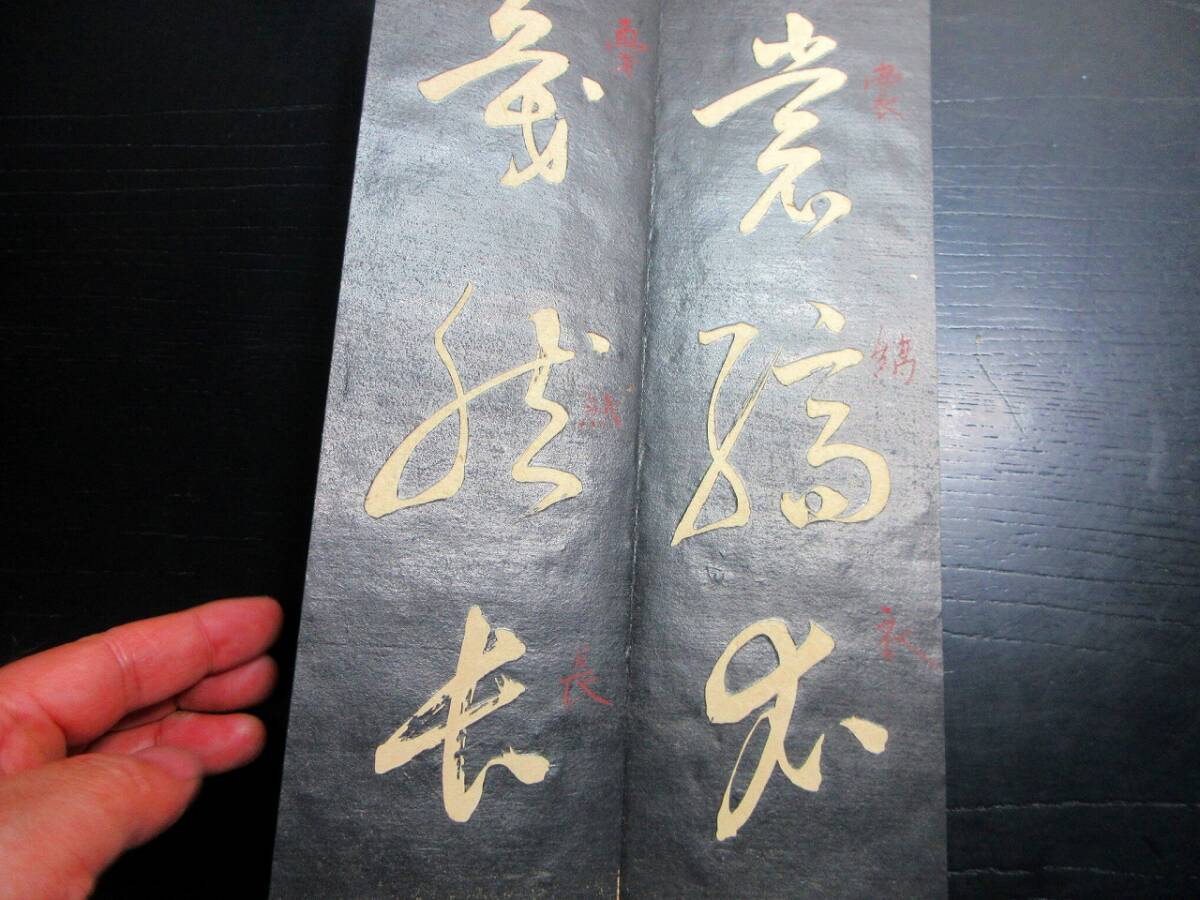 裳縞衣
裳縞衣
戛然長
然長